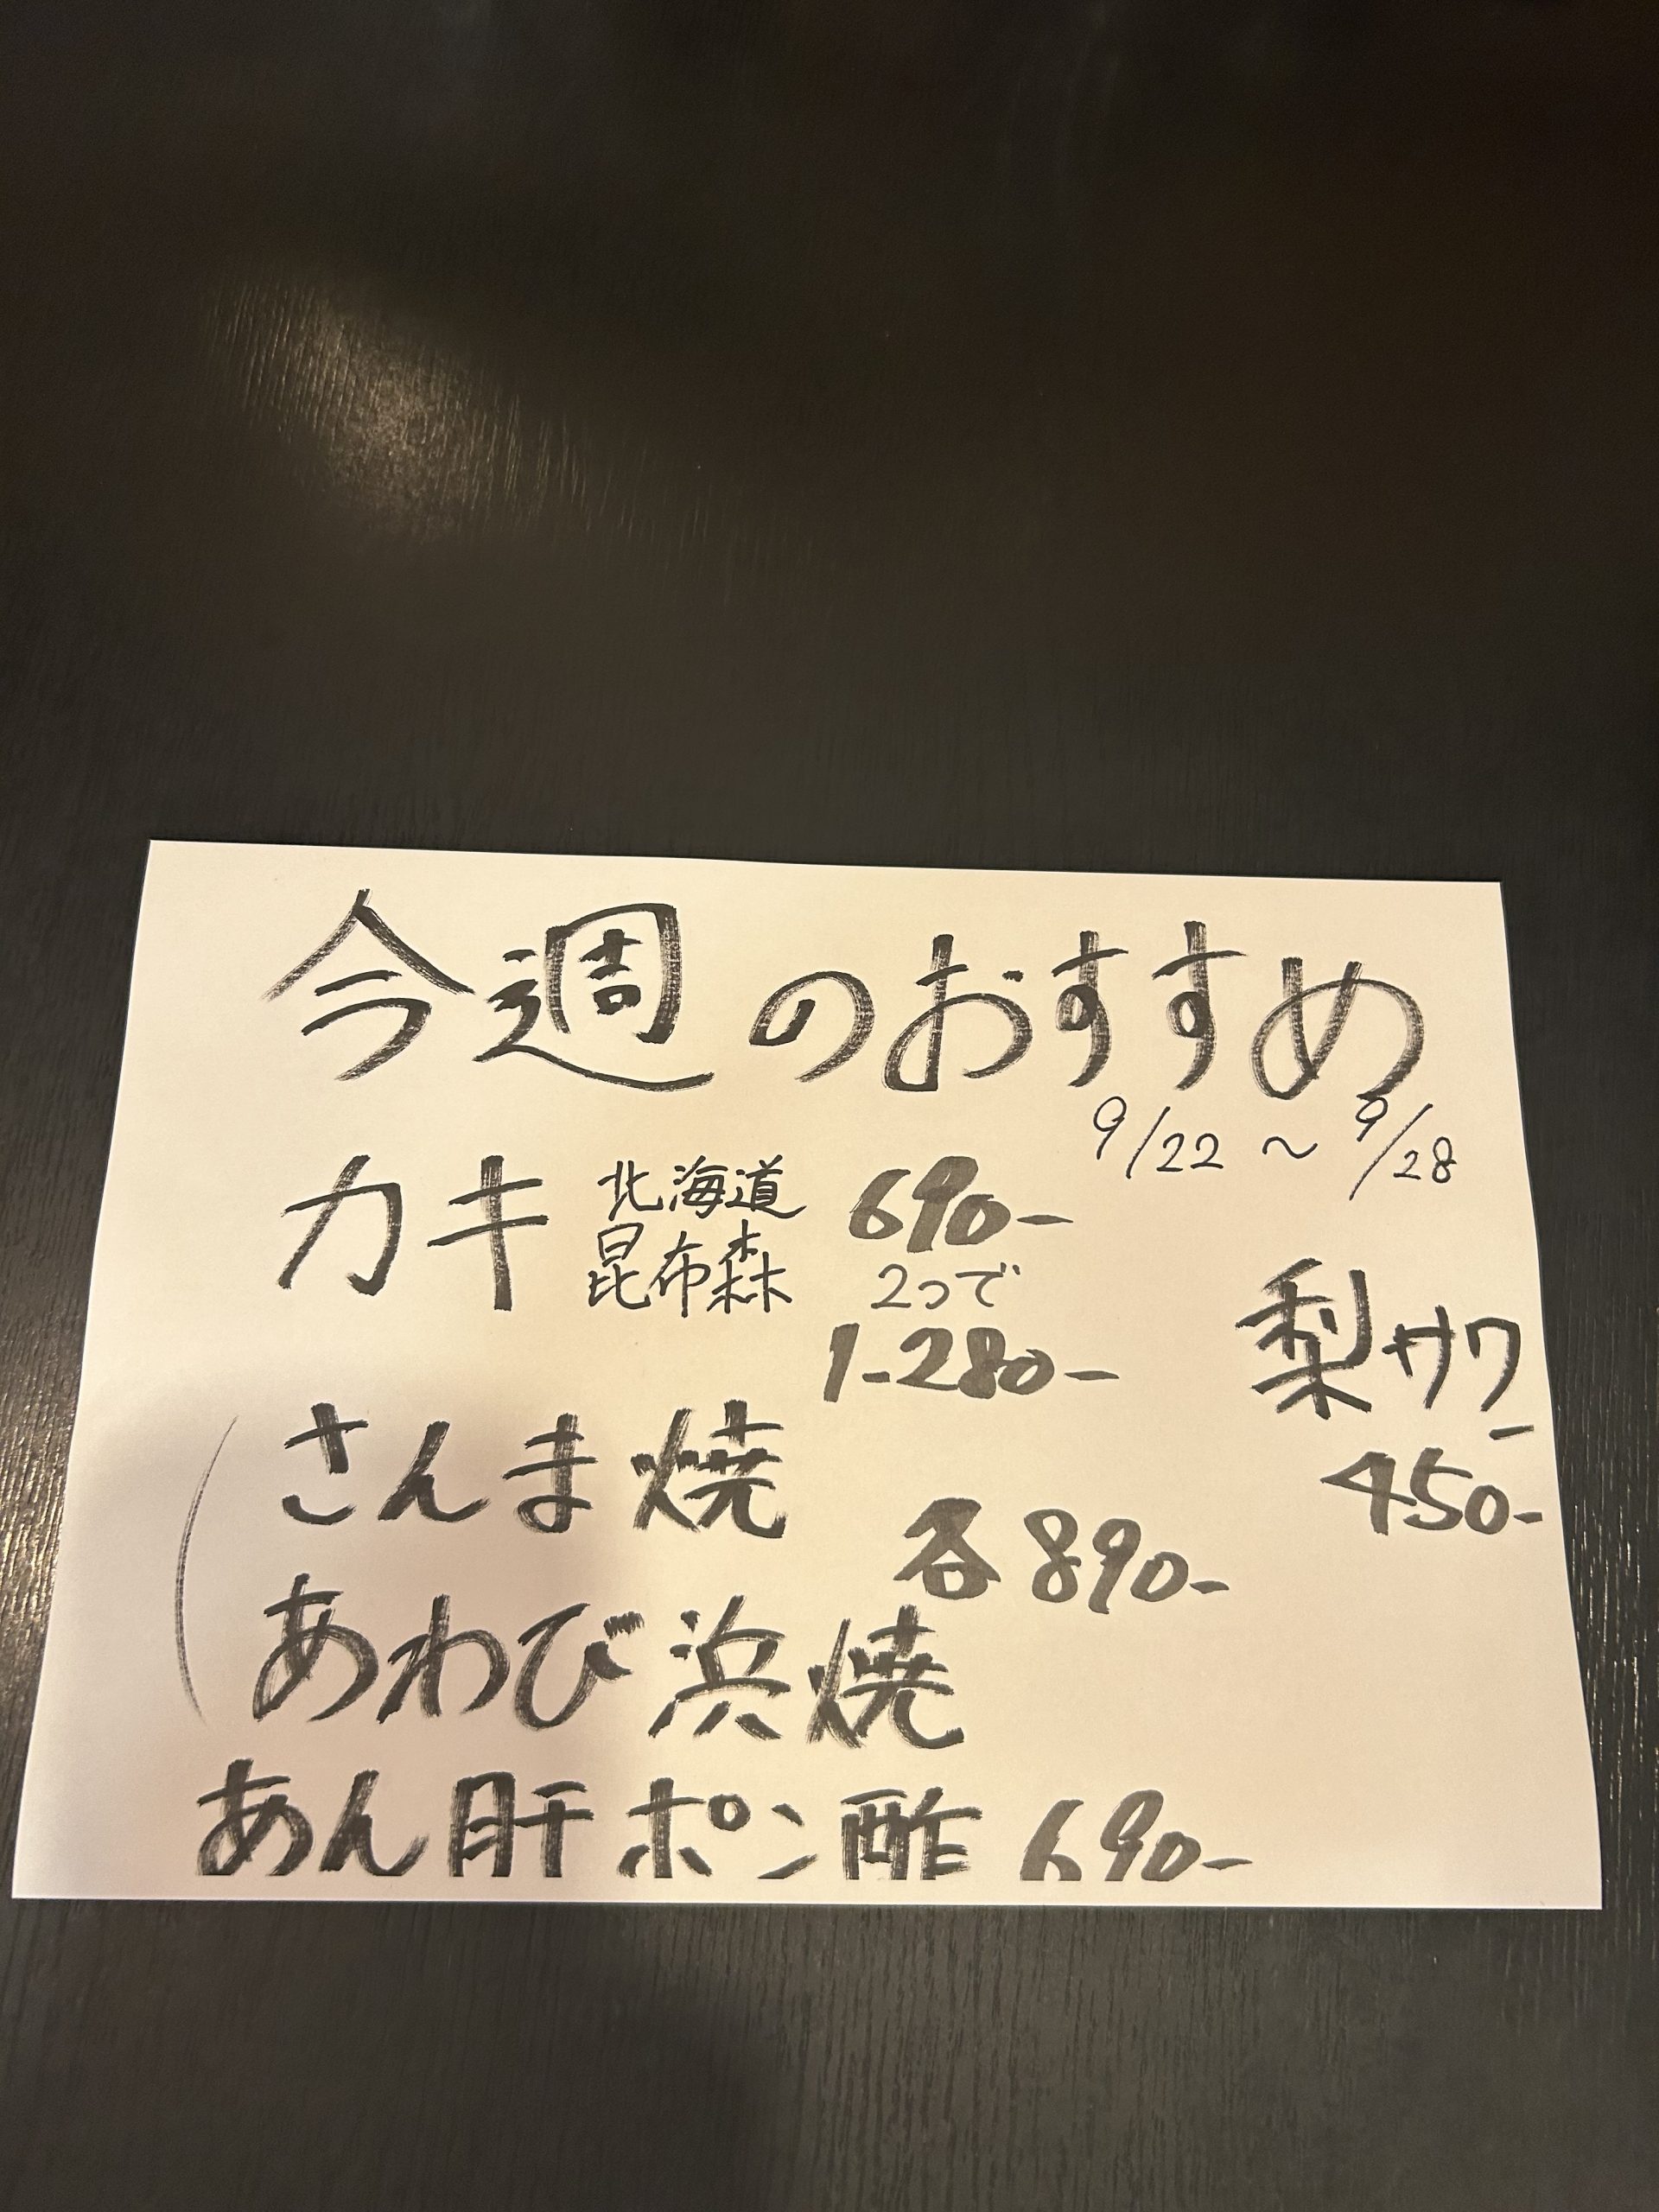 今週のおすすめ
9/22 〜 9/28
カキ 北海道 690-
昆布森 2つで
1-280-
梨サワー
450-
さんま焼
各890-
あわび浜焼
あん肝ポン酢 690-